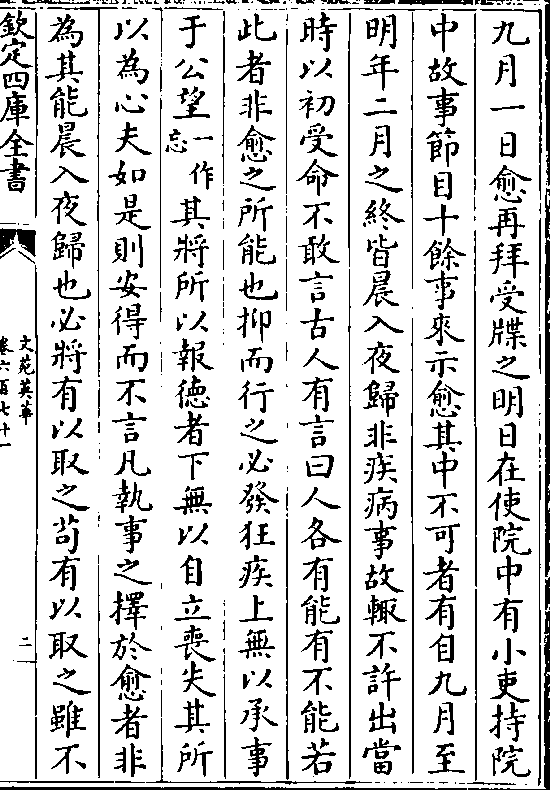 九月一日愈再拜受牒之明日在使院中有小吏持院
中故事節目十餘事來示愈其中不可者有自九月至
明年二月之終皆晨入夜歸非疾病事故輒不許出當
時以初受命不敢言古人有言曰人各有能有不能若
此者非愈之所能也抑而行之必發狂疾上無以承事
于公望一作忘其將所以報德者下無以自立喪失其所
以為心夫如是則安得而不言凡執事之擇於愈者非
為其能晨入夜歸也必將有以取之苟有以取之雖不
欽定四庫全書
文苑英華
卷六百七十一
二